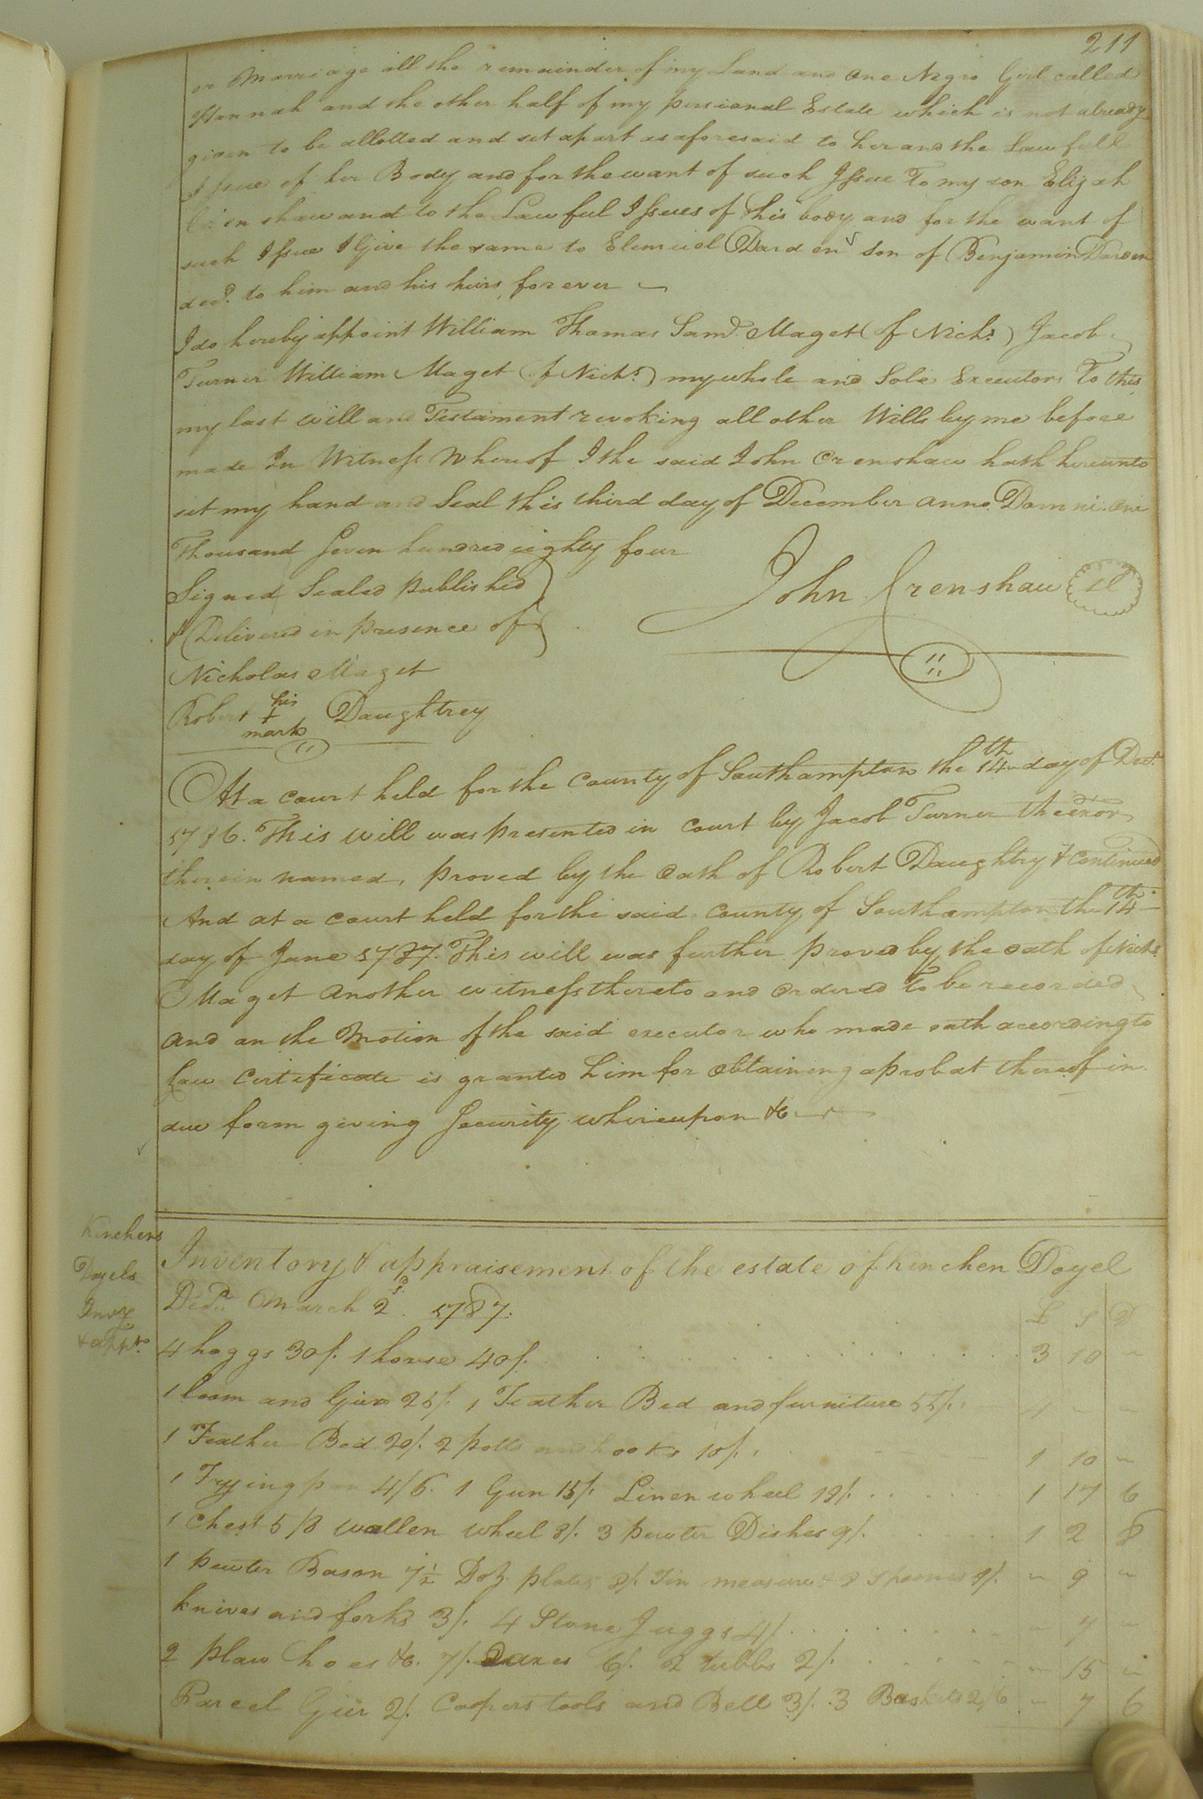 211
or Marriage all the remainder of my Land and one Negro Girl called
Hannah and the other half of my persional Estate which is not already
given to be allotted and set apart as aforesaid to her and the Lawfull
Issue of her Body and for the want of such Issue To my son Elijah
Crenshaw and to the Lawful Issues of his body and for the want of
such Issue I Give the same to Elemuel Darden son of Benjamin Darden
decd. to him and his heirs forever
I do hereby appoint William Thomas Saml. Maget (of Nichs.) Jacob
Turner William Maget (of Nichs.) my whole and Sole Executors To this
my last will and Testament revoking all other Wills by me before
made In Witness Whereof I the said John Crenshaw hath hereunto
set my hand and Seal this third day of December anno Domni. one
Thousand Seven hundred eighty four
Signed Sealed published
& Delivered in presence of
John Crenshaw
Nicholas Maget
Robert his + mark Daughtrey
At a court held for the County of Southampton the 14th day of Decr.
1786. This will was presented in court by Jacob Turner the exor
therein named, proved by the oath of Robert Daughtry & continued
And at a court held for the said County of Southampton the 14th
day of June 1787. This will was further proved by the oath of Nichs.
Maget another witness thereto and ordered To be recorded
and on the Motion of the said executor who made oath according to
Law Certificate is granted him for obtaining a probat thereof in
due form giving Security whereupon &c
Kinchens
Doyels
Invy
& appt.
Inventory & appraisement of the estate of Kinchen Doyel
Decd. March 2d. 1787.
£ S D
4 hoggs 30/. 1 horse 40/. 3 10 "
1 loom and Gear 25/. 1 Feather Bed and furniture 55/.
1 Feather Bed 20/. 2 potts and hooks 10/. 1 10 "
1 Frying pan 4/6. 1 Gun 15/. Linen wheel 18/. 1 17 6
1 Chest 5/8 wollen wheel 8/. 3 pewter Dishes 9/. 1 2 8
1 pewter Bason 7 1/2 Doz. plates 8/. Tin measure & 8 spoones 1/. " 9 "
knives and forks 3/. 4 Stone Juggs 4/. " 7 "
2 plow hoes &c. 7/. axes 6/. 2 tubbs 2/. " 15 "
Parcel Geir 2/. Coopers tools and Bell 3/. 3 Baskets 2/6 " 7 6